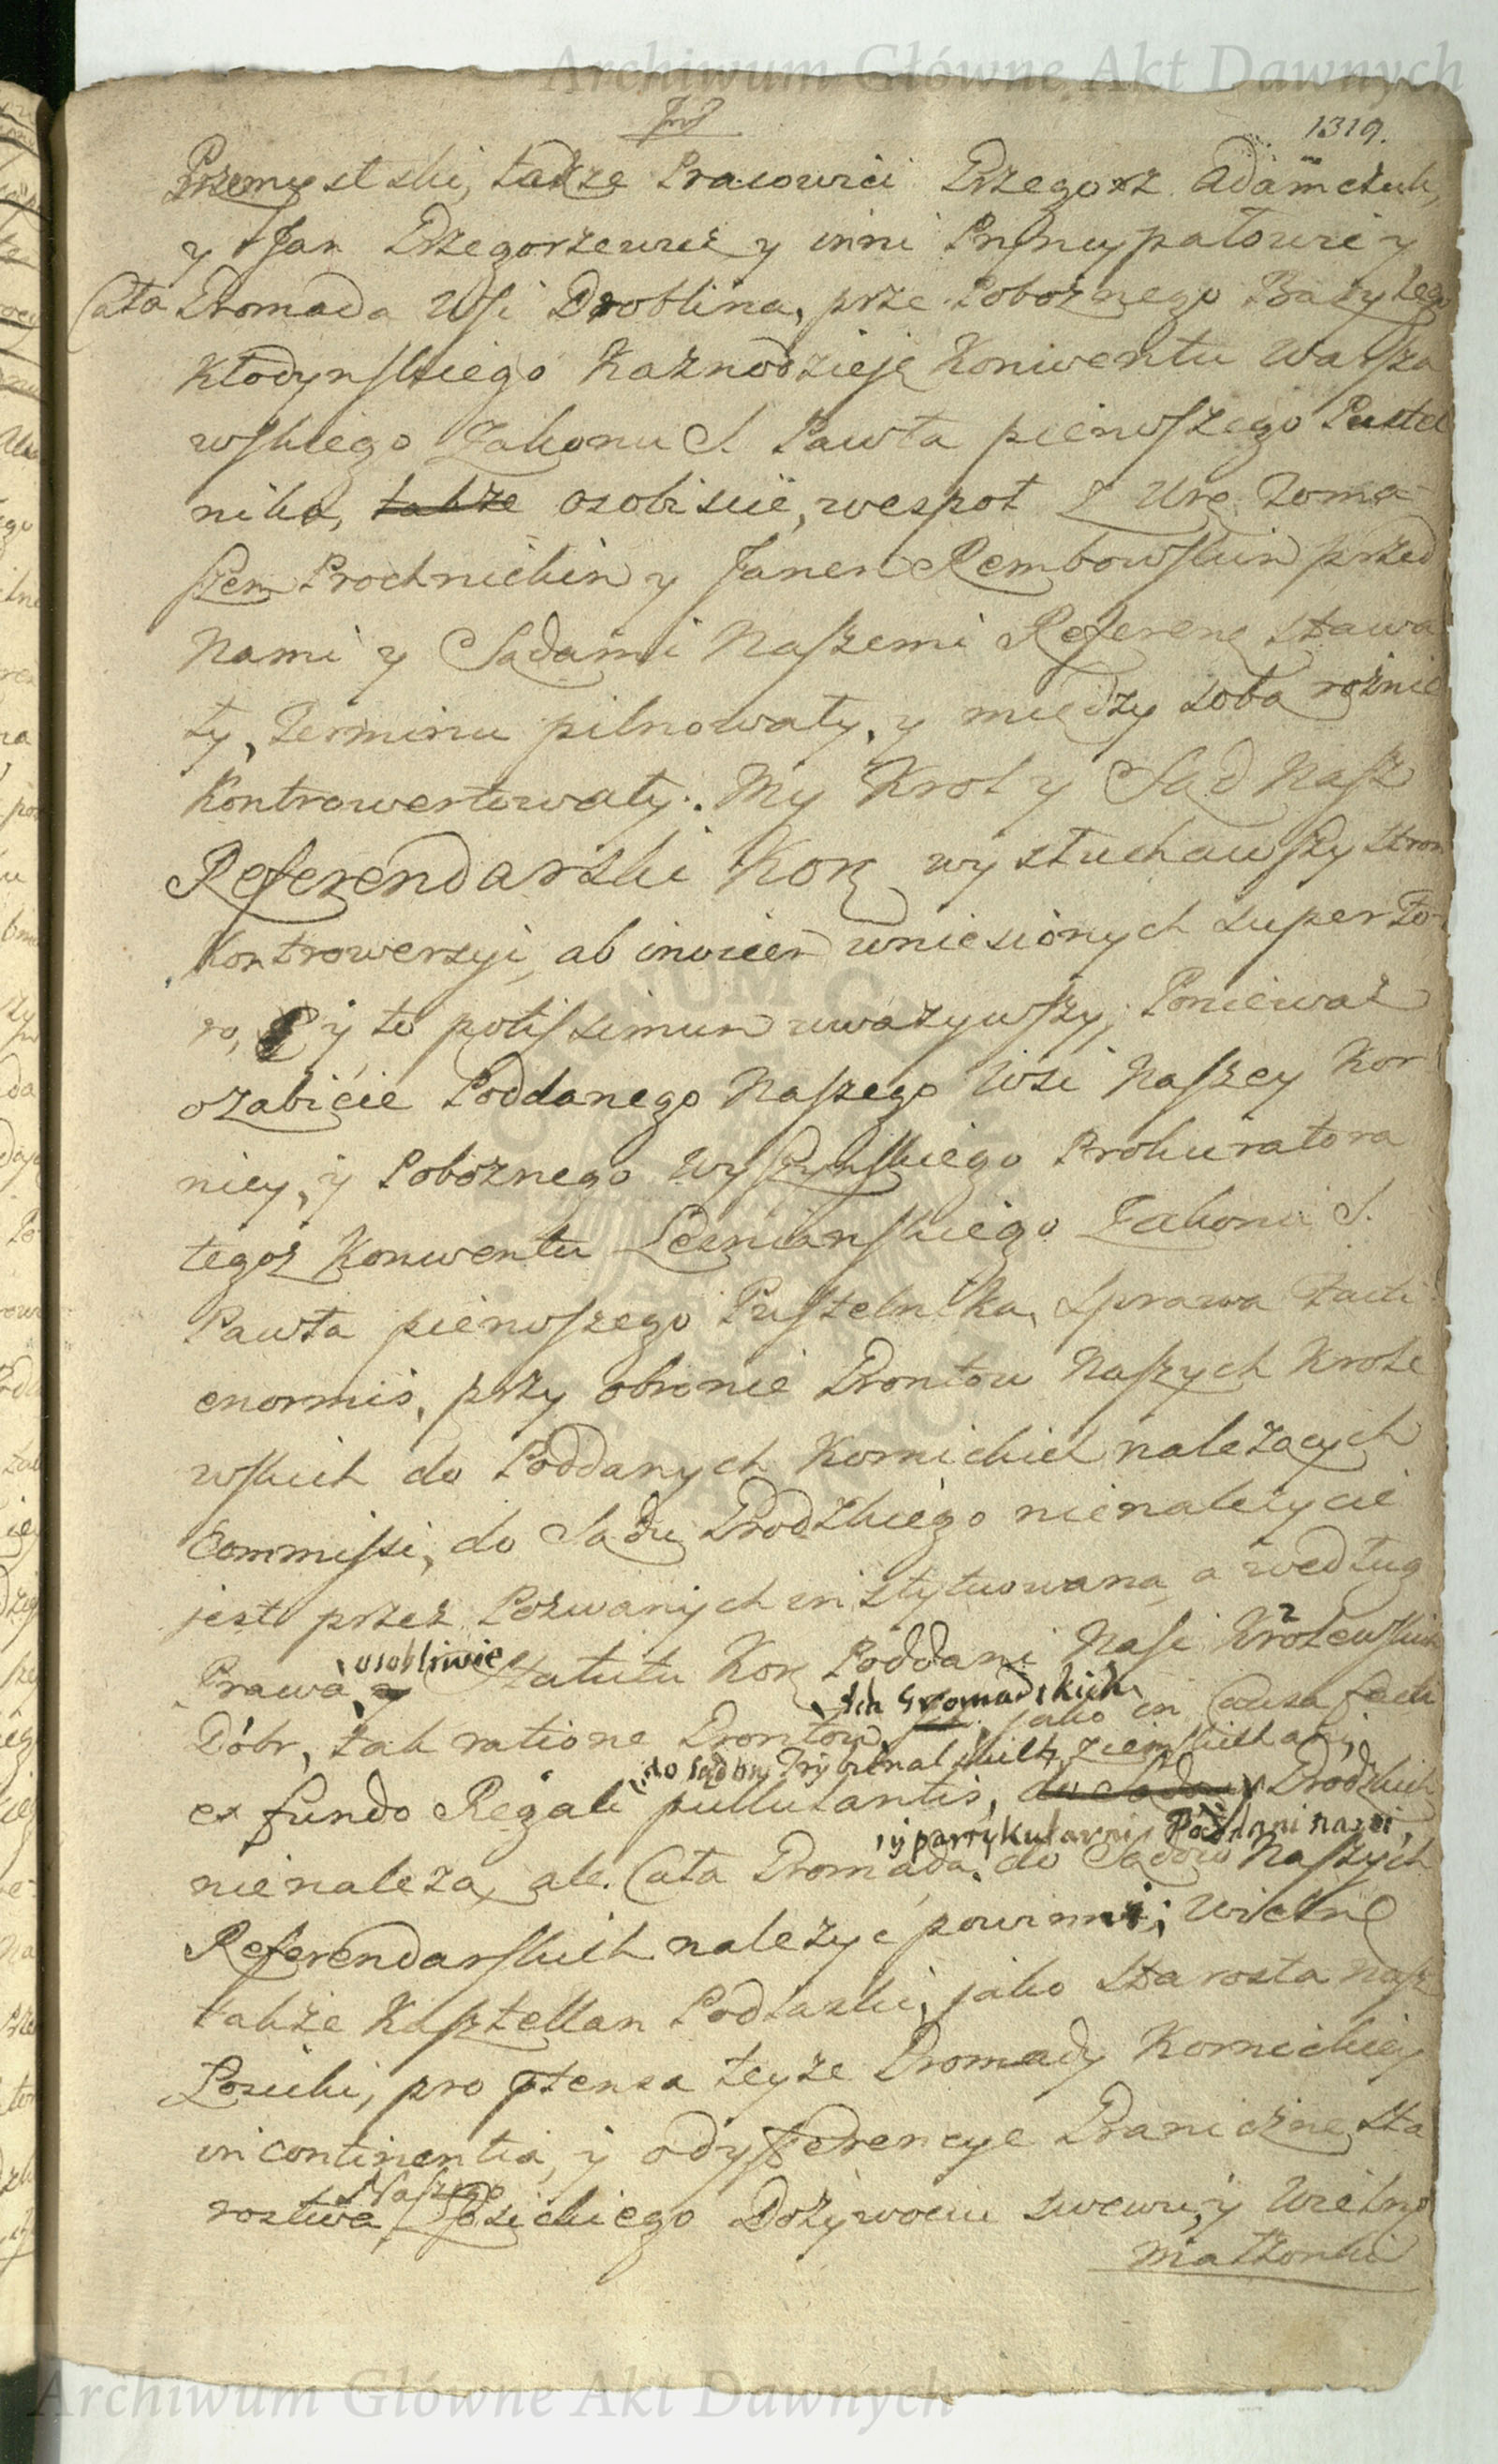 Archiwum Główne Akt Dawnych
1319.
Przemyslski, także Pracowici Grzegorz Adamczuk,
y Jan Grzegorzewicz y inni Pryncypałowie y
Cała Gromada Wsi Droblina, prze Pobożnego Bazylego
Kłodynskiego Kaznodzieię Konwentu Warsza
wskiego Zakonu S. Pawła pierwszego Pustel
nika, także osobiscie, wespoł z Urę Toma
szem Prochnickim y Janem Rembowskim przed
Nami y Sądami Naszemi Referenę stawa
ły, Terminu pilnowały, y między sobą rożnie
Kontrowertowały. My Krol y Sąd Nasz
Referendarski Korę wysłuchawszy stron
Kontrowersyi, ab invicem wniesionych super to
ro, y to potissimum uważywszy, Ponieważ
o zabicie Poddanego Naszego Wsi Naszey Kor
nicy, y Pobożnego Wyszynskiego Prokuratora
tegoż Konwentu Lesnianskiego Zakonu S.
Pawła pierwszego Pustelnika, sprawa facti
enormis, przy obronie Gruntow Naszych Krole
wskich do Poddanych Kornickich należących
Commissi, do Sądu Grodzkiego nienależycie
jest przez Pozwanych instytuowana, a według
Prawa, osobliwie Statutu Korę Poddani Nasi Krolewskich
Dobr, tak ratione Gruntow Ich Gromadzkich, jako in Causa facti
do sądow Trybunalskich, Ziemskich ani,
ex fundo Regali pullulantis, do Sądow Grodzkich
, y partykularni Poddani nasi,
nienależą, ale Cała Gromada do Sądow Naszych
Referendarskich należyć powinni; Wielnę
także Kasztellan Podlaski, jako Starosta Nasz
Łosicki, pro ptensa teyże Gromady Kornickiey
incontinentia, y o dyfferencye Graniczne Sta
rostwa Naszego Łosickiego Dożywociu swemu, y Wielnę
Małżonki
Archiwum Główne Akt Dawnych